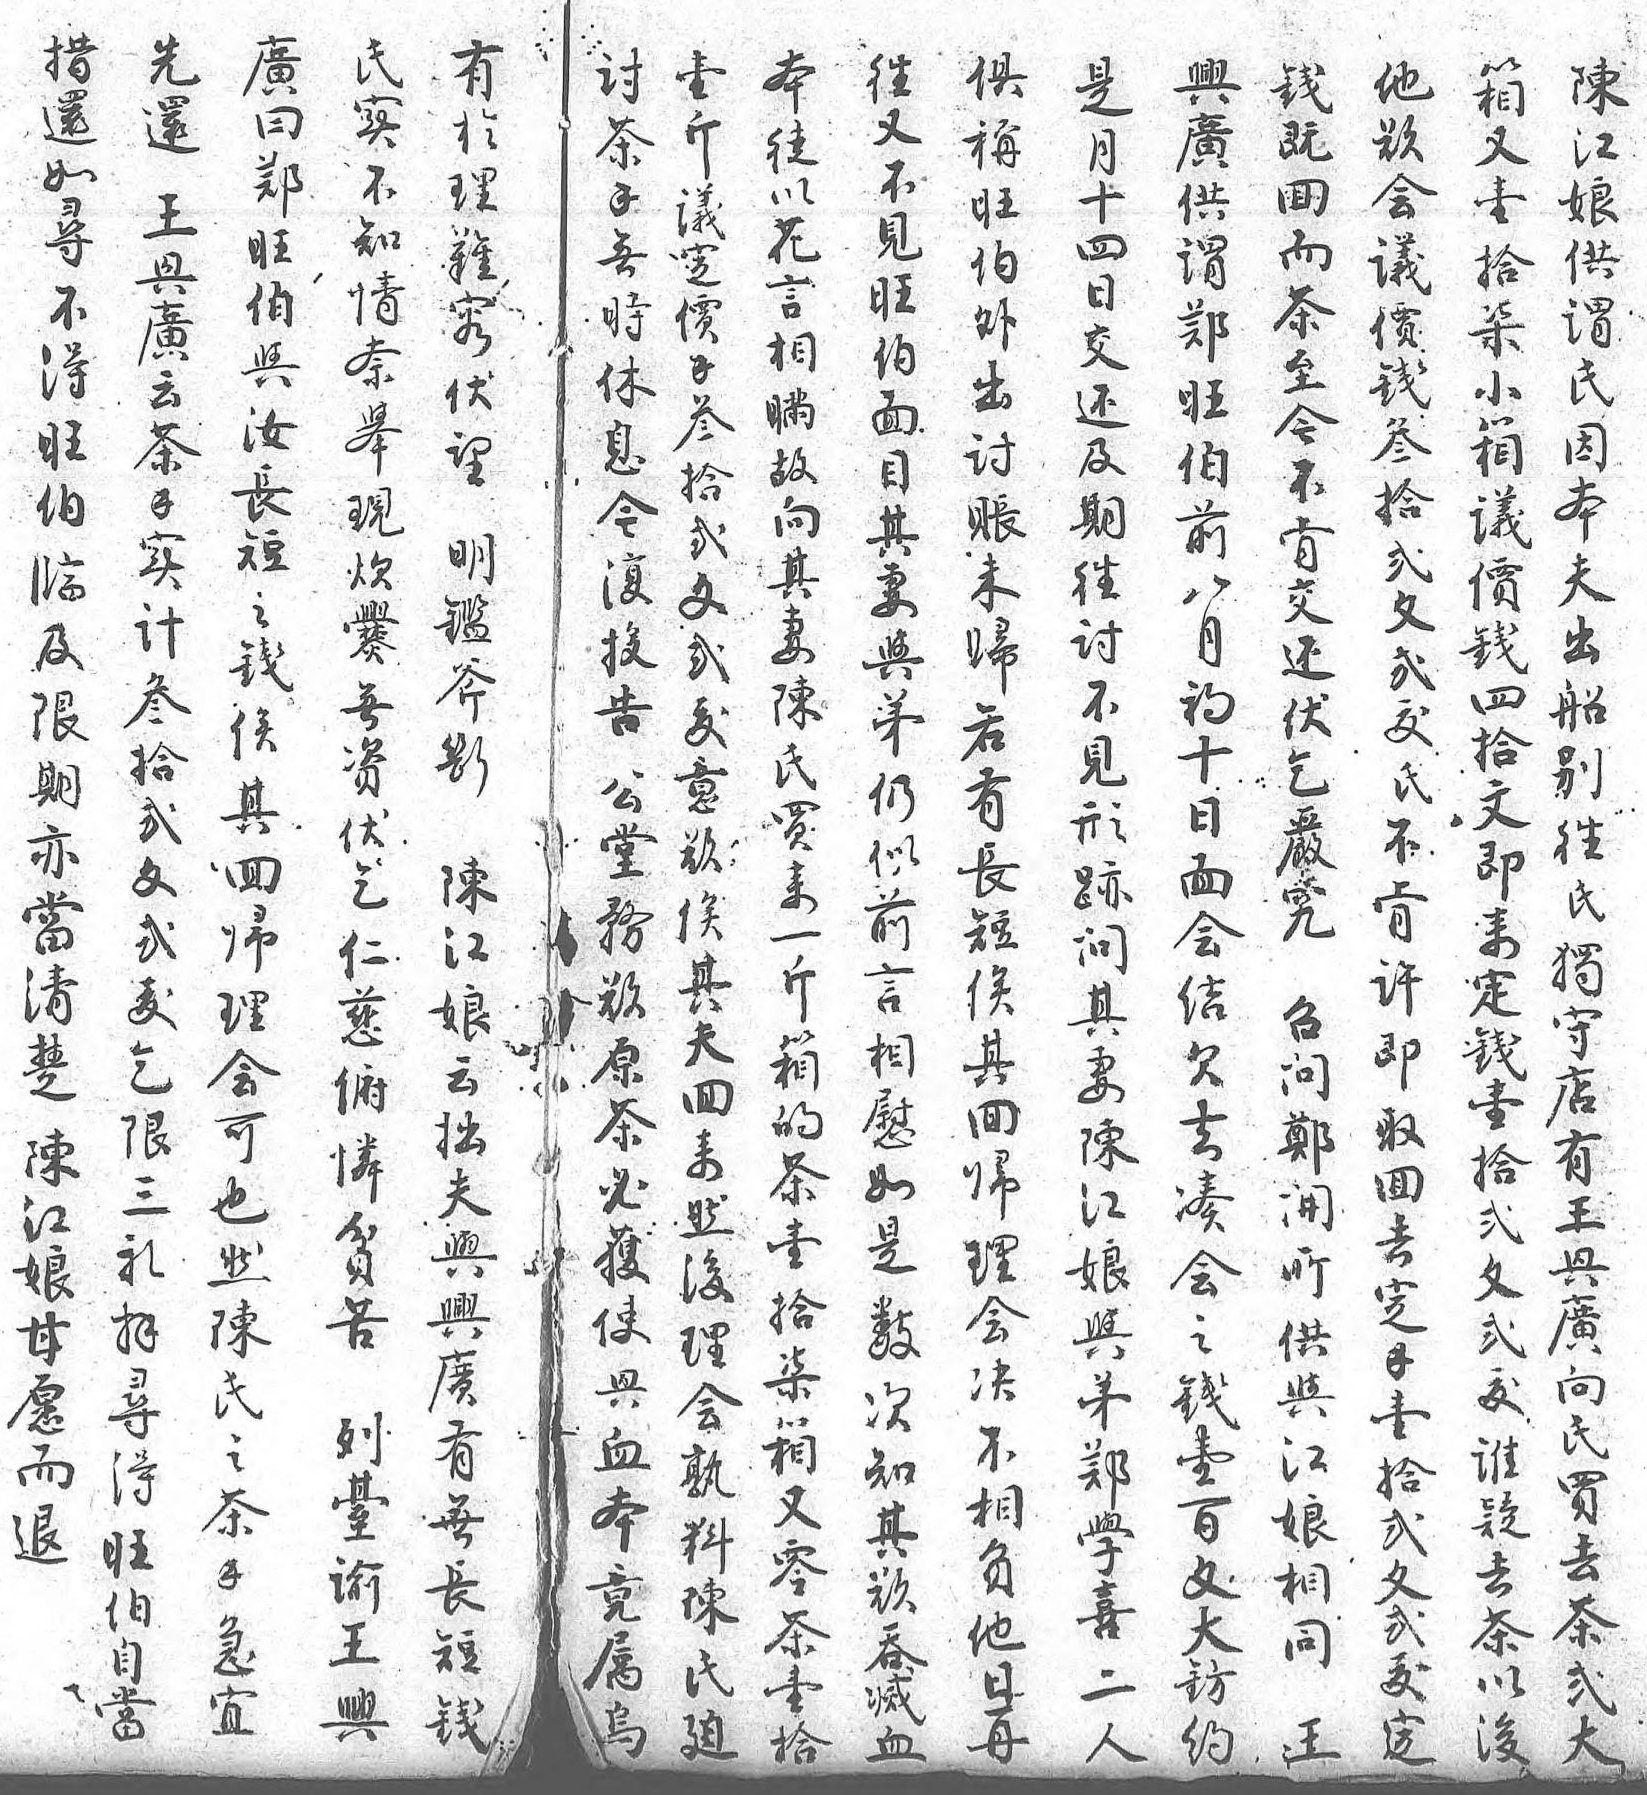 陳江娘供謂民因本夫出船別徃民獨守店有王興廣向民買去茶弍大
箱又壹拾柒小箱議價錢四拾文即来定錢壹拾弍文弍錢誰疑去茶以後
他欺会議價錢叁拾弍文弍錢氏不肯許即取囬去定錢壹拾弍文弍錢定
錢既囬而茶至今不肯交还伏乞嚴究 召问鄭開所供與江娘相同 王
興廣供謂鄭旺伯前八月初十日面会结欠去湊会之錢壹百文大鈁約
是月十四日交还及期徃討不見形跡问其妻陳江娘與弟鄭學喜二人
俱稱旺伯外出討賬未歸若有長短俟其囬帰理会决不相負他日再
徃又不見旺伯面目其妻與弟仍似前言相慰如是數次知其欺吞滅血
本徒以花言相瞞故向其妻陳氏買来一斤箱的茶壹拾柒箱又零茶壹拾
壹斤議定價錢叁拾弍文弍錢意欲俟其夫囬来然後理会孰料陳氏廹
討茶錢無時休息今復投告 公堂務欲原茶必獲使興血本竟属烏
有於理難容伏望 明鑑斧斷 陳江娘云拙夫與興廣有無長短錢
氏寔不知情奈舉現炊爨無资伏乞仁慈俯憐貧苦 列臺諭王興
廣曰鄭旺伯與汝長短之錢俟其囬帰理会可也然陳氏之茶錢急宜
先還 王興廣云茶錢实计叁拾弍文弍錢乞限三礼拜尋得旺伯自當
措還如尋不得旺伯臨及限期亦當清楚 陳江娘甘愿而退